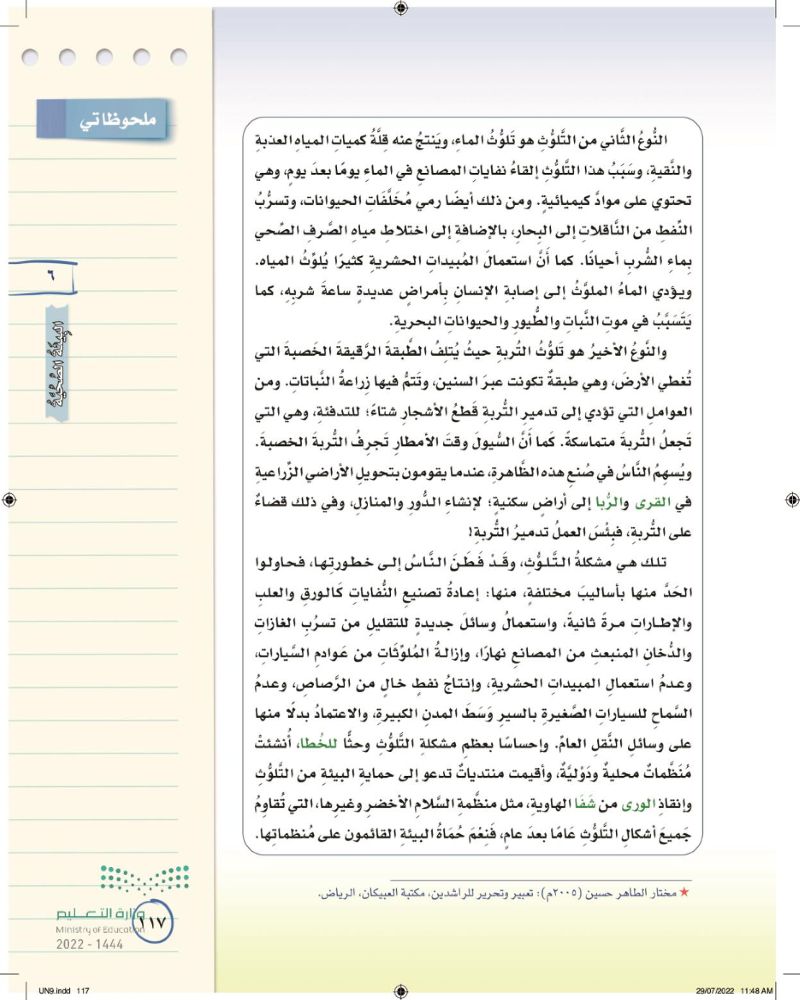 ملحوظاتي
٦
البِيئَةُ الصِّحِّيَّةُ
النُّوعُ الثَّاني من التَّلوُّثِ هو تَلوُّثُ الماءِ، ويَنتجُ عنه قِلَّةُ كمياتِ المياهِ العذبةِ
والنَّقيةِ، وسَبَبُ هذا التَّلوُّثِ إلقاءُ نفاياتِ المصانعِ في الماءِ يومًا بعدَ يومٍ، وهي
تحتوي على موادَّ كيميائيةٍ. ومن ذلك أيضًا رمي مُخَلَّفَاتِ الحيواناتِ، وتسرُّبُ
النِّفطِ من النَّاقلاتِ إلى البِحارِ، بالإضافةِ إلى اختلاطِ مياهِ الصَّرفِ الصِّحي
بماءِ الشُّربِ أحيانًا. كما أَنَّ استعمالَ المُبيداتِ الحشريةِ كثيرًا يُلوِّثُ المياهَ.
ويؤدي الماءُ الملوَّثُ إلى إصابةِ الإنسانِ بأمراضٍ عديدةٍ ساعةَ شربِهِ، كما
يَتَسَبَّبُ في موتِ النَّباتِ والطُّيورِ والحيواناتِ البحريةِ.
والنَّوعُ الأخيرُ هو تَلوُّثُ التُّربةِ حيثُ يُتلِفُ الطَّبقةَ الرَّقيقةَ الخَصبةَ التي
تُغطي الأرضَ، وهي طبقةٌ تكونت عبرَ السنين، وتَتمُّ فيها زراعةُ النَّباتاتِ. ومن
العواملِ التي تؤدي إلى تدميرِ التُّربةِ قَطعُ الأشجارِ شتاءً؛ للتدفئةِ، وهي التي
تَجعلُ التُّربةَ متماسكةً. كَما أَنَّ السُّيولَ وقتَ الأمطارِ تَجرِفُ التُّربةَ الخصبةَ.
ويُسهِمُ النَّاسُ في صُنعِ هذه الظَّاهرةِ، عندما يقومون بتحويلِ الأراضي الزِّراعيةِ
في القرى والرُّبا إلى أراضٍ سكنيةٍ؛ لإنشاءِ الدُّورِ والمنازلِ، وفي ذلك قضاءٌ
على التُّربةِ، فبِئْسَ العملُ تدميرُ التُّربةِ!
تلك هي مشكلةُ التَّلوُّثِ، وقَدْ فَطَنَ النَّاسُ إلى خطورتِها، فحاولوا
الحَدَّ منها بأساليبَ مختلفةٍ، منها: إعادةُ تصنيعِ النُّفاياتِ كَالورقِ والعلبِ
والإطاراتِ مرةً ثانيةً، واستعمالُ وسائلَ جديدةٍ للتقليلِ من تسرُبِ الغازاتِ
والدُّخانِ المنبعثِ من المصانعِ نهارًا، وإزالةُ المُلوِّثَاتِ من عَوادمِ السَّياراتِ،
وعدمُ استعمالِ المبيداتِ الحشريةِ، وإنتاجُ نفطٍ خالٍ من الرَّصاصِ، وعدمُ
السَّماحِ للسياراتِ الصَّغيرةِ بالسيرِ وَسَطَ المدنِ الكبيرةِ، والاعتمادُ بدلًا منها
على وسائلِ النَّقلِ العامِّ. وإحساسًا بعظمِ مشكلةِ التَّلوُّثِ وحثًّا للخُطا، أُنشئتْ
مُنَظَّماتٌ محليةٌ ودَوْليَّةٌ، وأقيمت منتدياتٌ تدعو إلى حمايةِ البيئةِ من التَّلوُّثِ
وإنقاذِ الورى من شَفَا الهاويةِ، مثل منظَّمةِ السَّلامِ الأخضرِ وغيرِها، التي تُقاوِمُ
جَميعَ أشكالِ التَّلوُّثِ عَامًا بعدَ عامٍ، فَنِعْمَ حُمَاةُ البيئةِ القائمون على مُنظماتِها.
★ مختار الطاهر حسين (٢٠٠٥م): تعبير وتحرير للراشدين، مكتبة العبيكان، الرياض.
وزارة التعليم
Ministry of Education
2022 - 1444
١١٧
UN9.indd 117
29/07/2022 11:48 AM